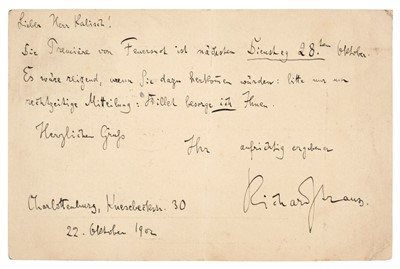 Lieber Herr Kalisch!
Die Première von Feuersnot ist nächsten Dienstag 28. Oktober.
Es wäre reizend, wenn Sie dazu herkommen würden: bitte nur um
rechtzeitige Mitteilung: Billet besorge ich Ihnen.
Herzlichen Gruß
Ihr aufrichtig ergebener
Richard Strauss.
Charlottenburg, Knesebeckstr. 30
22. Oktober 1902